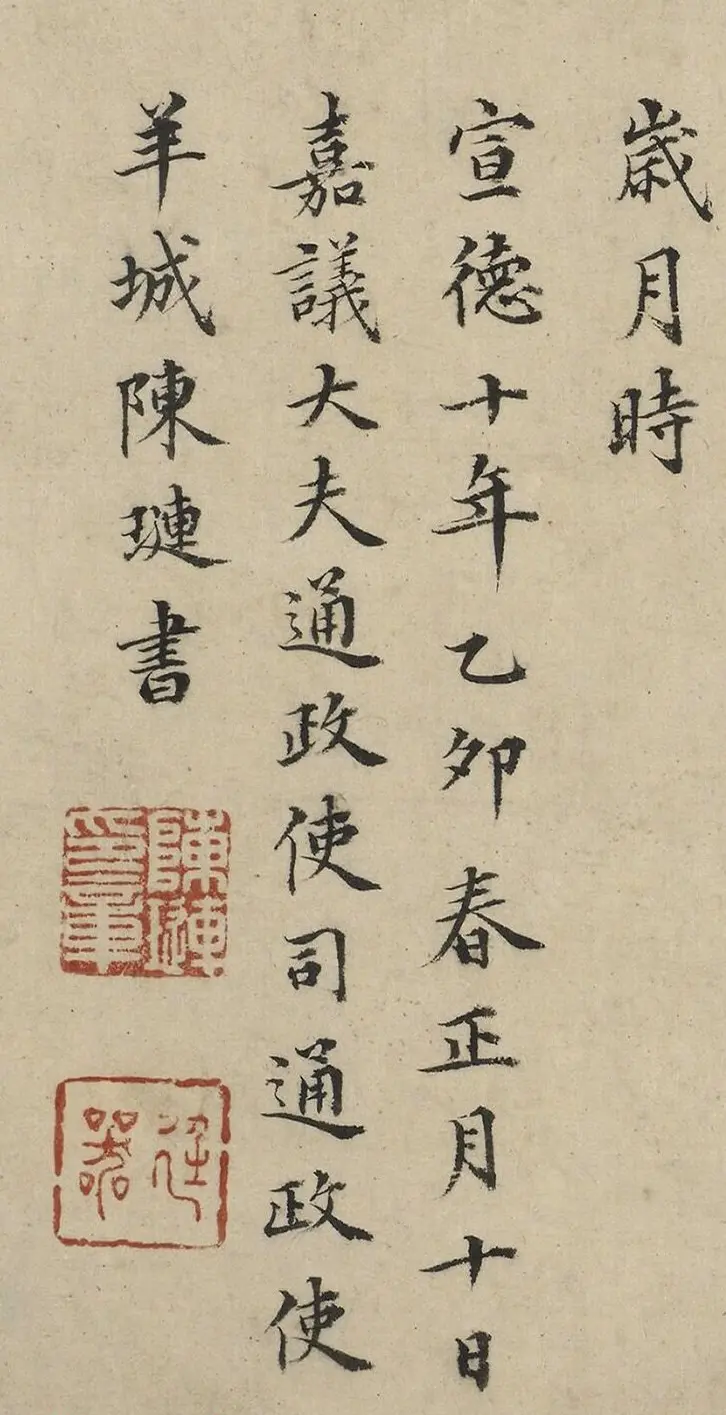 歲月時
宣德十年乙卯春正月十日
嘉議大夫通政使司通政使
羊城陳璉書
陳璉印章
廷器